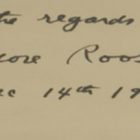 the regards
ore Roos
ec 14th 19